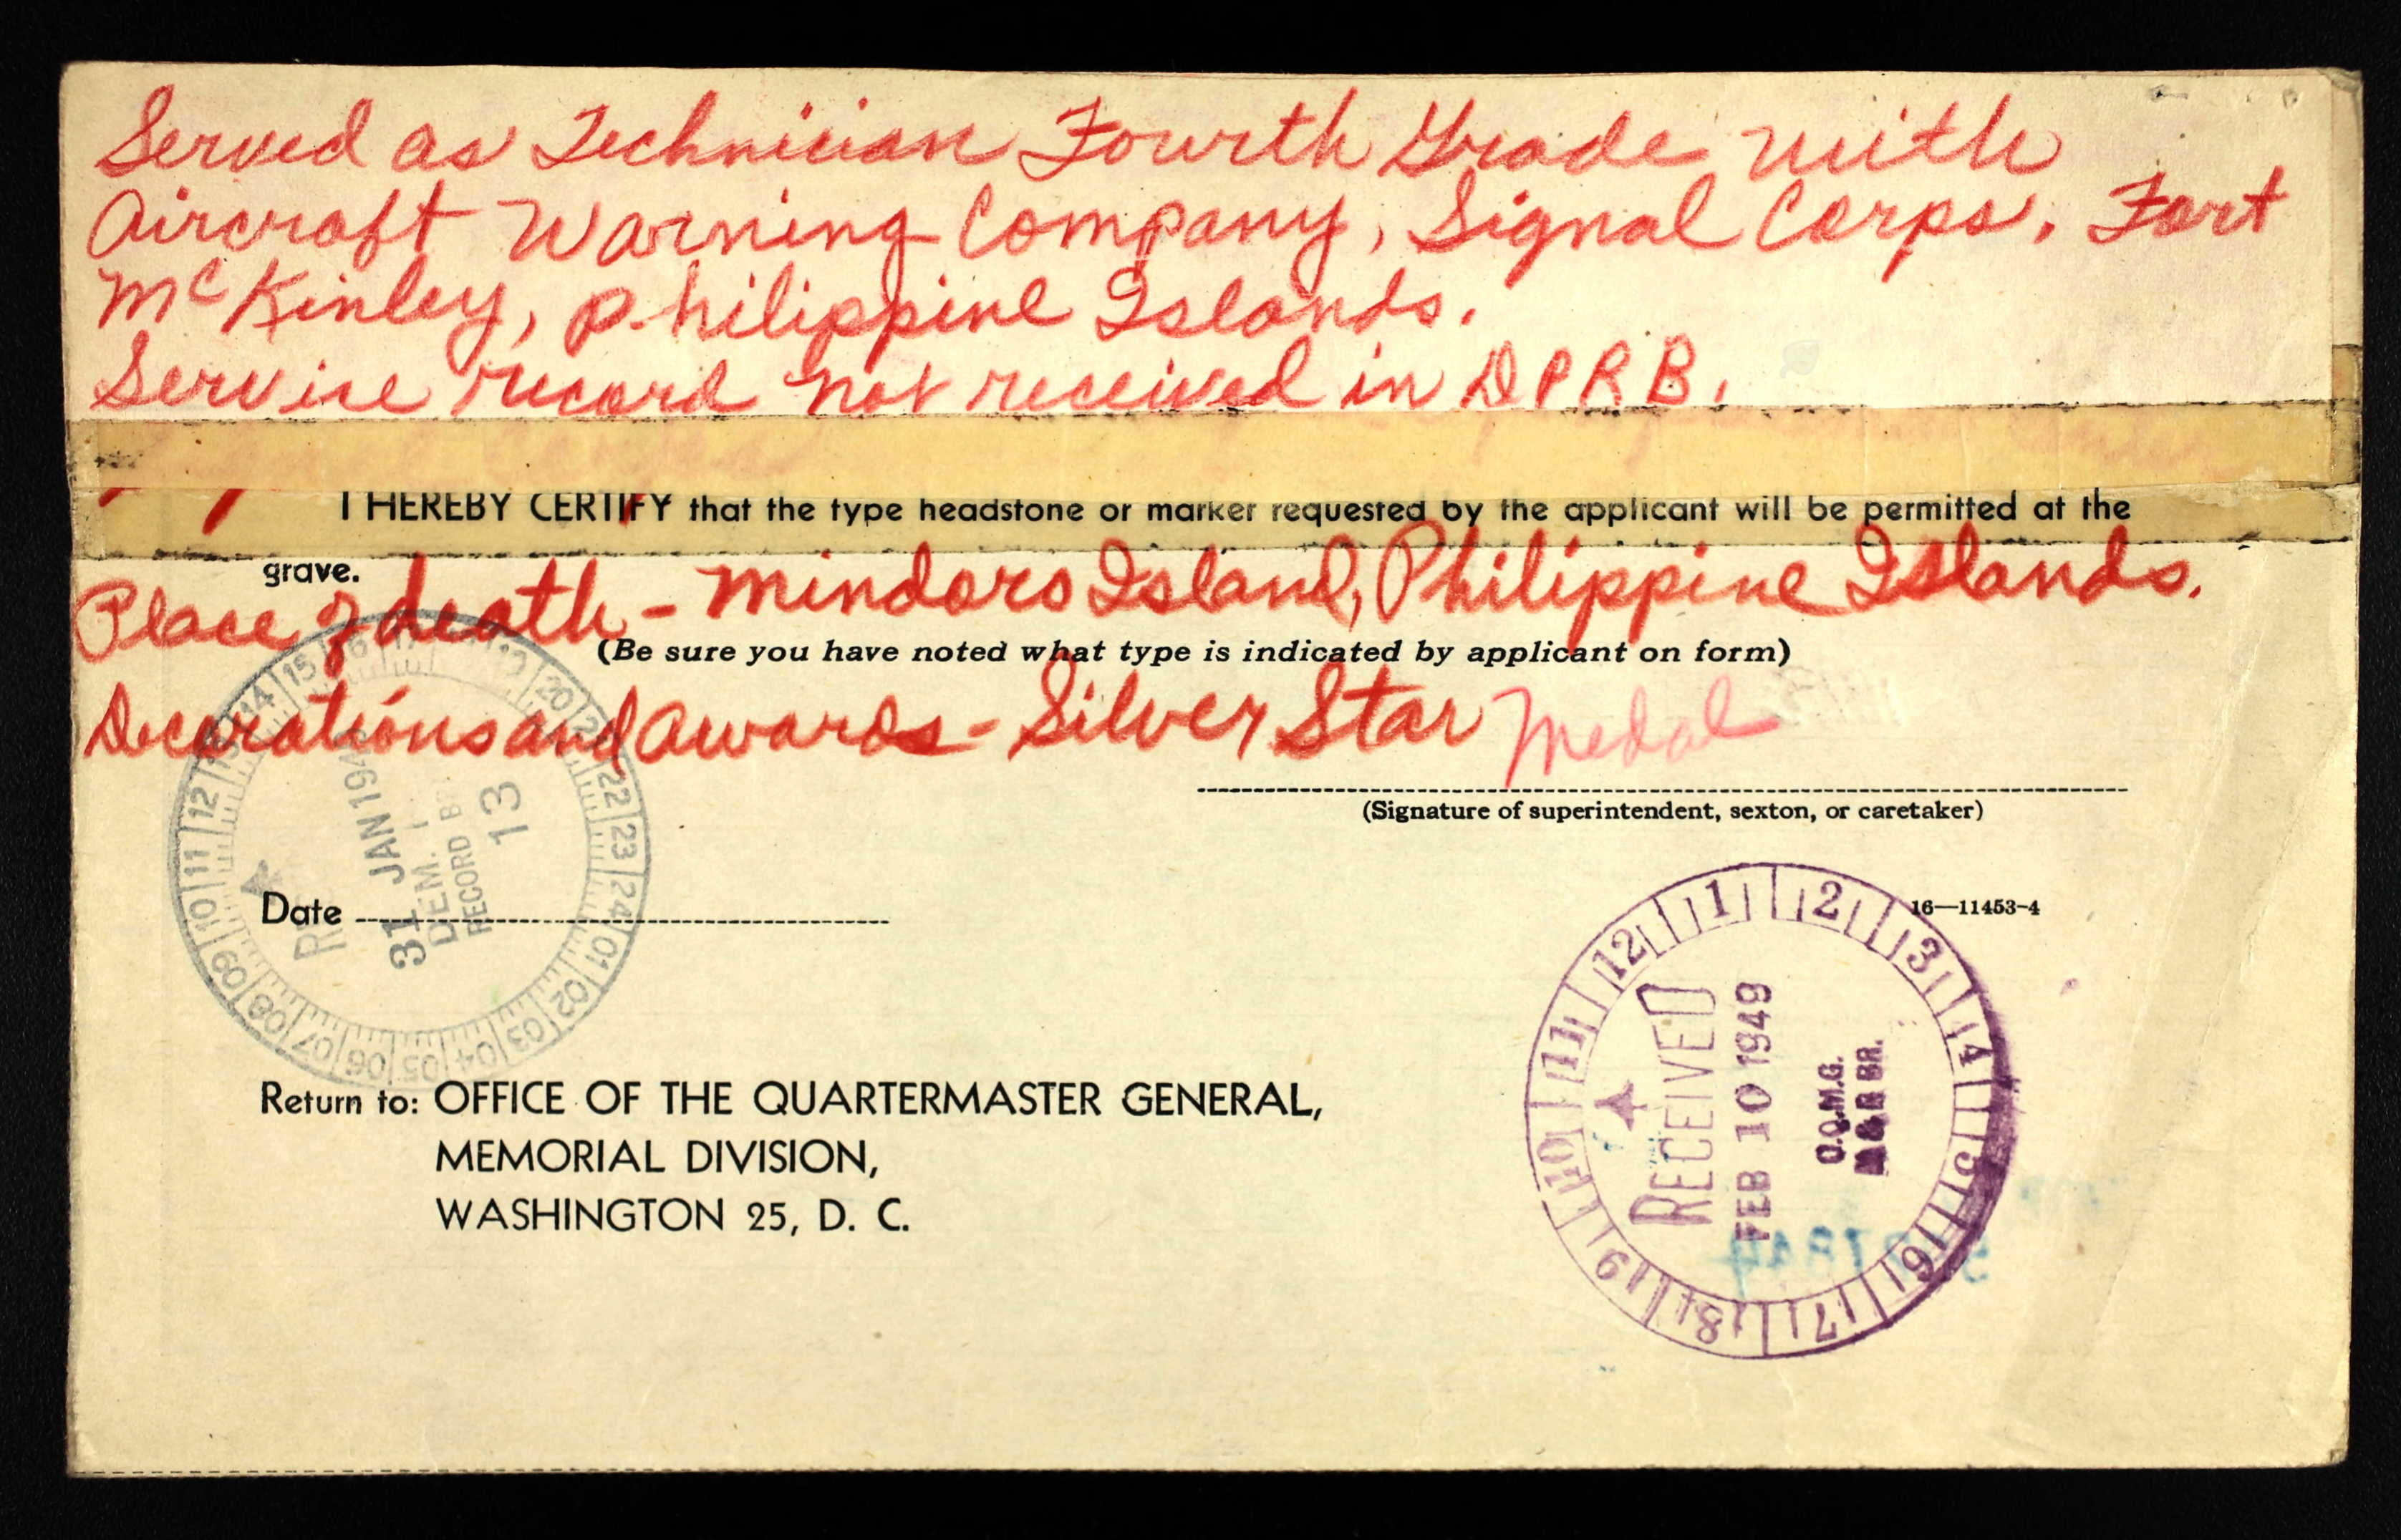 Served as Technician Fourth Grade with
Aircraft Warning Company, Signal Corps, Fort
McKinley, Philippine Islands.
Service record not received in DPRB.
I HEREBY CERTIFY that the type headstone or marker requested by the applicant will be permitted at the
grave.
Place of death - Mindoro Island, Philippine Islands.
(Be sure you have noted what type is indicated by applicant on form)
Decorations and Awards - Silver Star Medal
(Signature of superintendent, sexton, or caretaker)
31 JAN 194
DEM.
RECORD
13
14 15 20 22 23 24 01 02 03 04 05 06 07 08 09 10 11 12
Date
16—11453-4
1 2 3 4 5 6 7 8 9 10 11 12
RECEIVED
FEB 10 1949
O.Q.M.G.
BR.
Return to: OFFICE OF THE QUARTERMASTER GENERAL,
MEMORIAL DIVISION,
WASHINGTON 25, D. C.